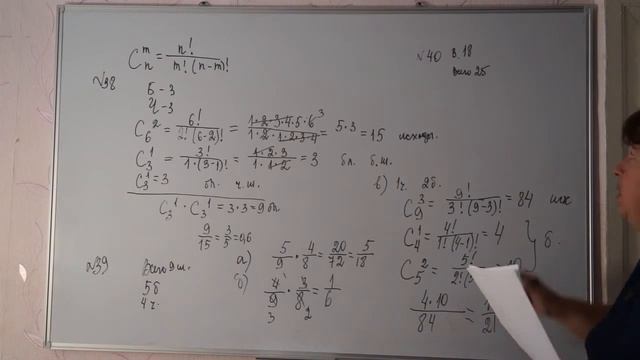 C_n^m = n! / m!·(n-m)!
№38
Б - 3
Ч - 3
C_6^2 = 6! / 2!(6-2)! = 1·2·3·4·5·6 / 1·2·1·2·3·4 = 5·3 = 15 исходы.
C_3^1 = 3! / 1·(3-1)! = 1·2·3 / 1·1·2 = 3 бл. б.ш.
C_3^1 = 3 бл. ч.ш.
C_3^1 · C_3^1 = 3·3 = 9 бл
9/15 = 3/5 = 0,6
№39
Всего 9 ш.
5 б
4 ч.
а) 5/9 · 4/8 = 20/72 = 5/18
б) 4/9 · 3/8 = 1/6
3 2
№40 В. 18
Всего 25
в) 1ч. 2б.
C_9^3 = 9! / 3!(9-3)! = 84 исх
C_4^1 = 4! / 1!(4-1)! = 4
C_5^2 = 5! / 2!(5
б.
4·10 / 84 =